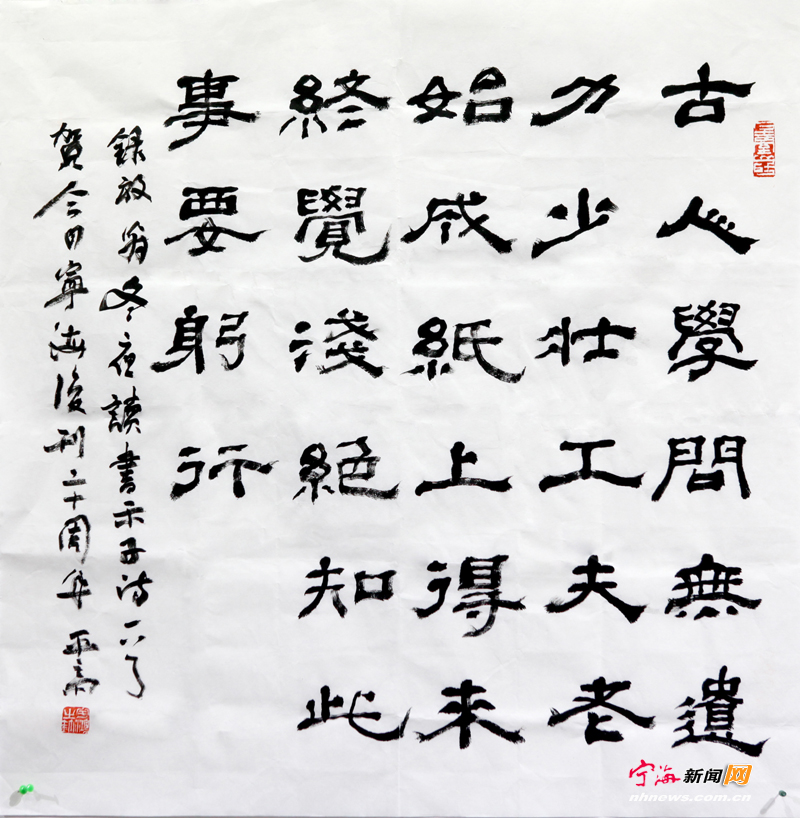 古人學問無遺
力少壯工夫老
始成紙上得來
終覺淺絕知此
事要躬行
錄放翁冬夜讀書示子詩以
賀今日寧海復刊二十周年
宁海新闻网
nhnews.com.cn